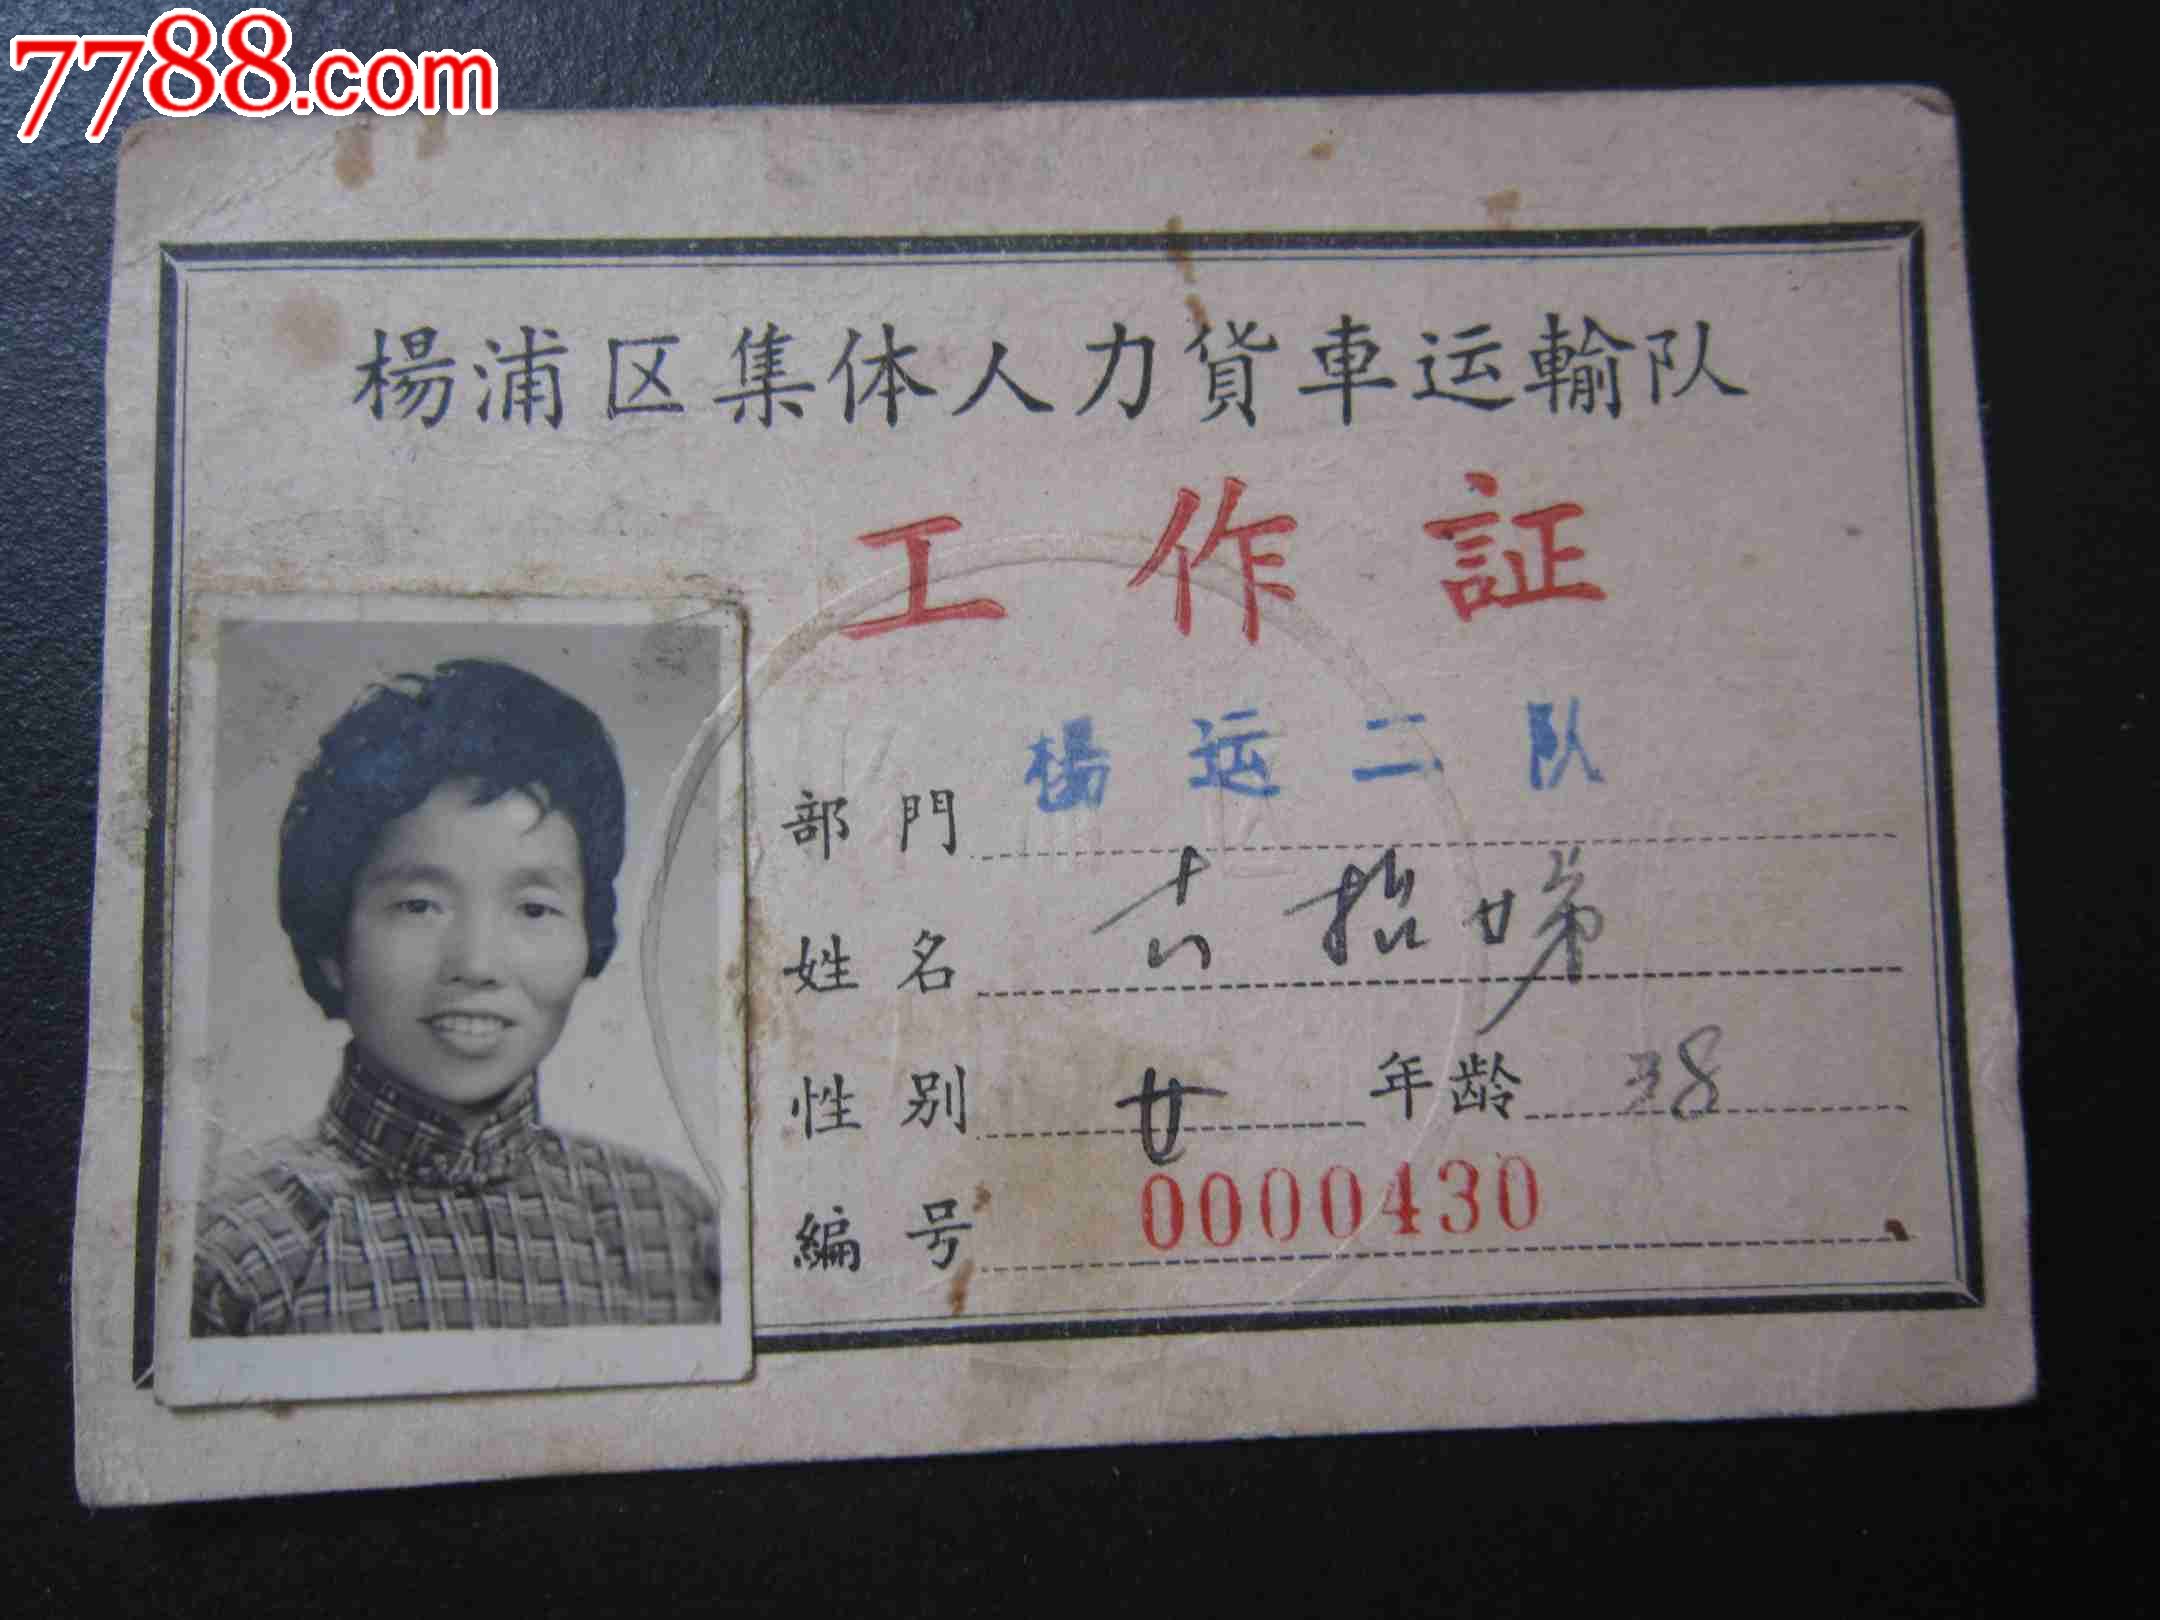 7788.com
楊浦区集体人力貨車运輸队
工作証
部門 楊运二队
姓名 袁招娣
性別 女 年龄 38
編号 0000430